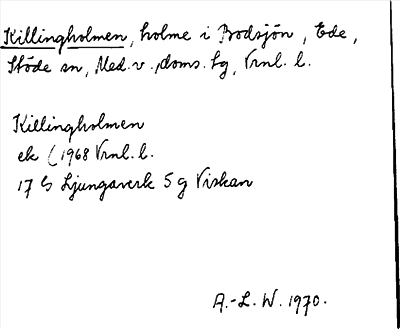 Killingholmen, holme i Bodsjön, Ede,
Stöde sn, Med.v. doms. tg, Vrnl. l.
Killingholmen
ek (1968 Vrnl. l.
17 G Ljungaverk 5 g Viskan
A.-L. W. 1970.